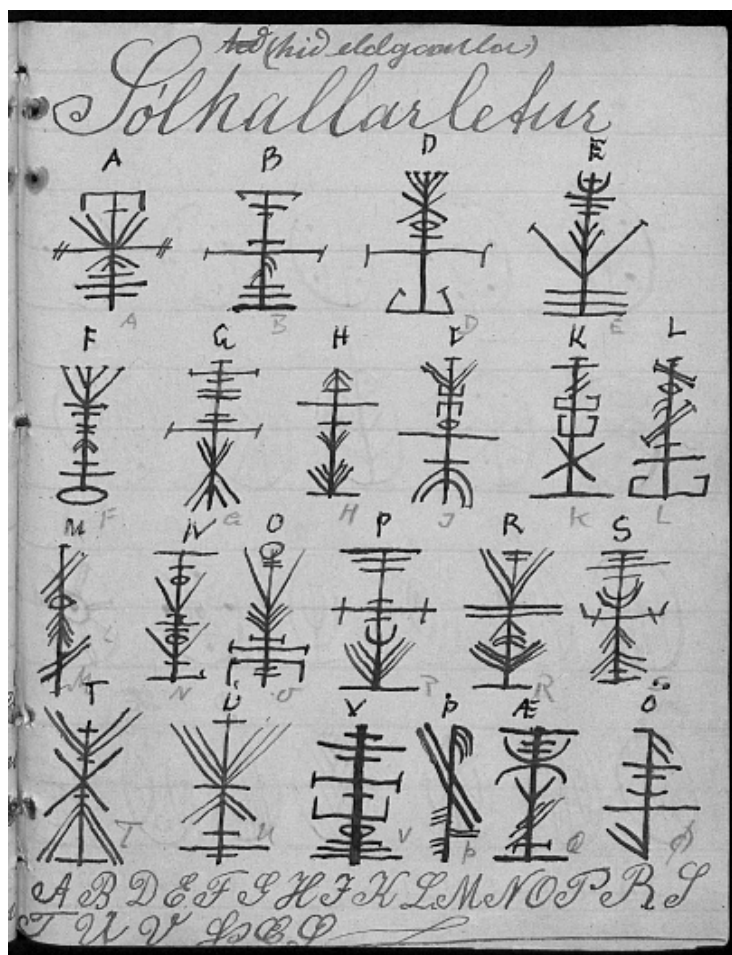 (hið eldgamla)
Sólhallarletur
A B D E
A B D E
F G H I K L
F G H J K L
M N O P R S
M N O P R S
T U V Þ Æ Ö
T U V Þ Œ Ø
A B D E F G H I K L M N O P R S
T U V Þ Œ Ø